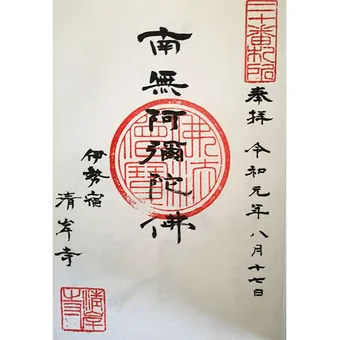 二十番札所
奉拝 令和元年八月十七日
南無阿彌陀佛
佛法僧寶
伊勢宿
清岸寺